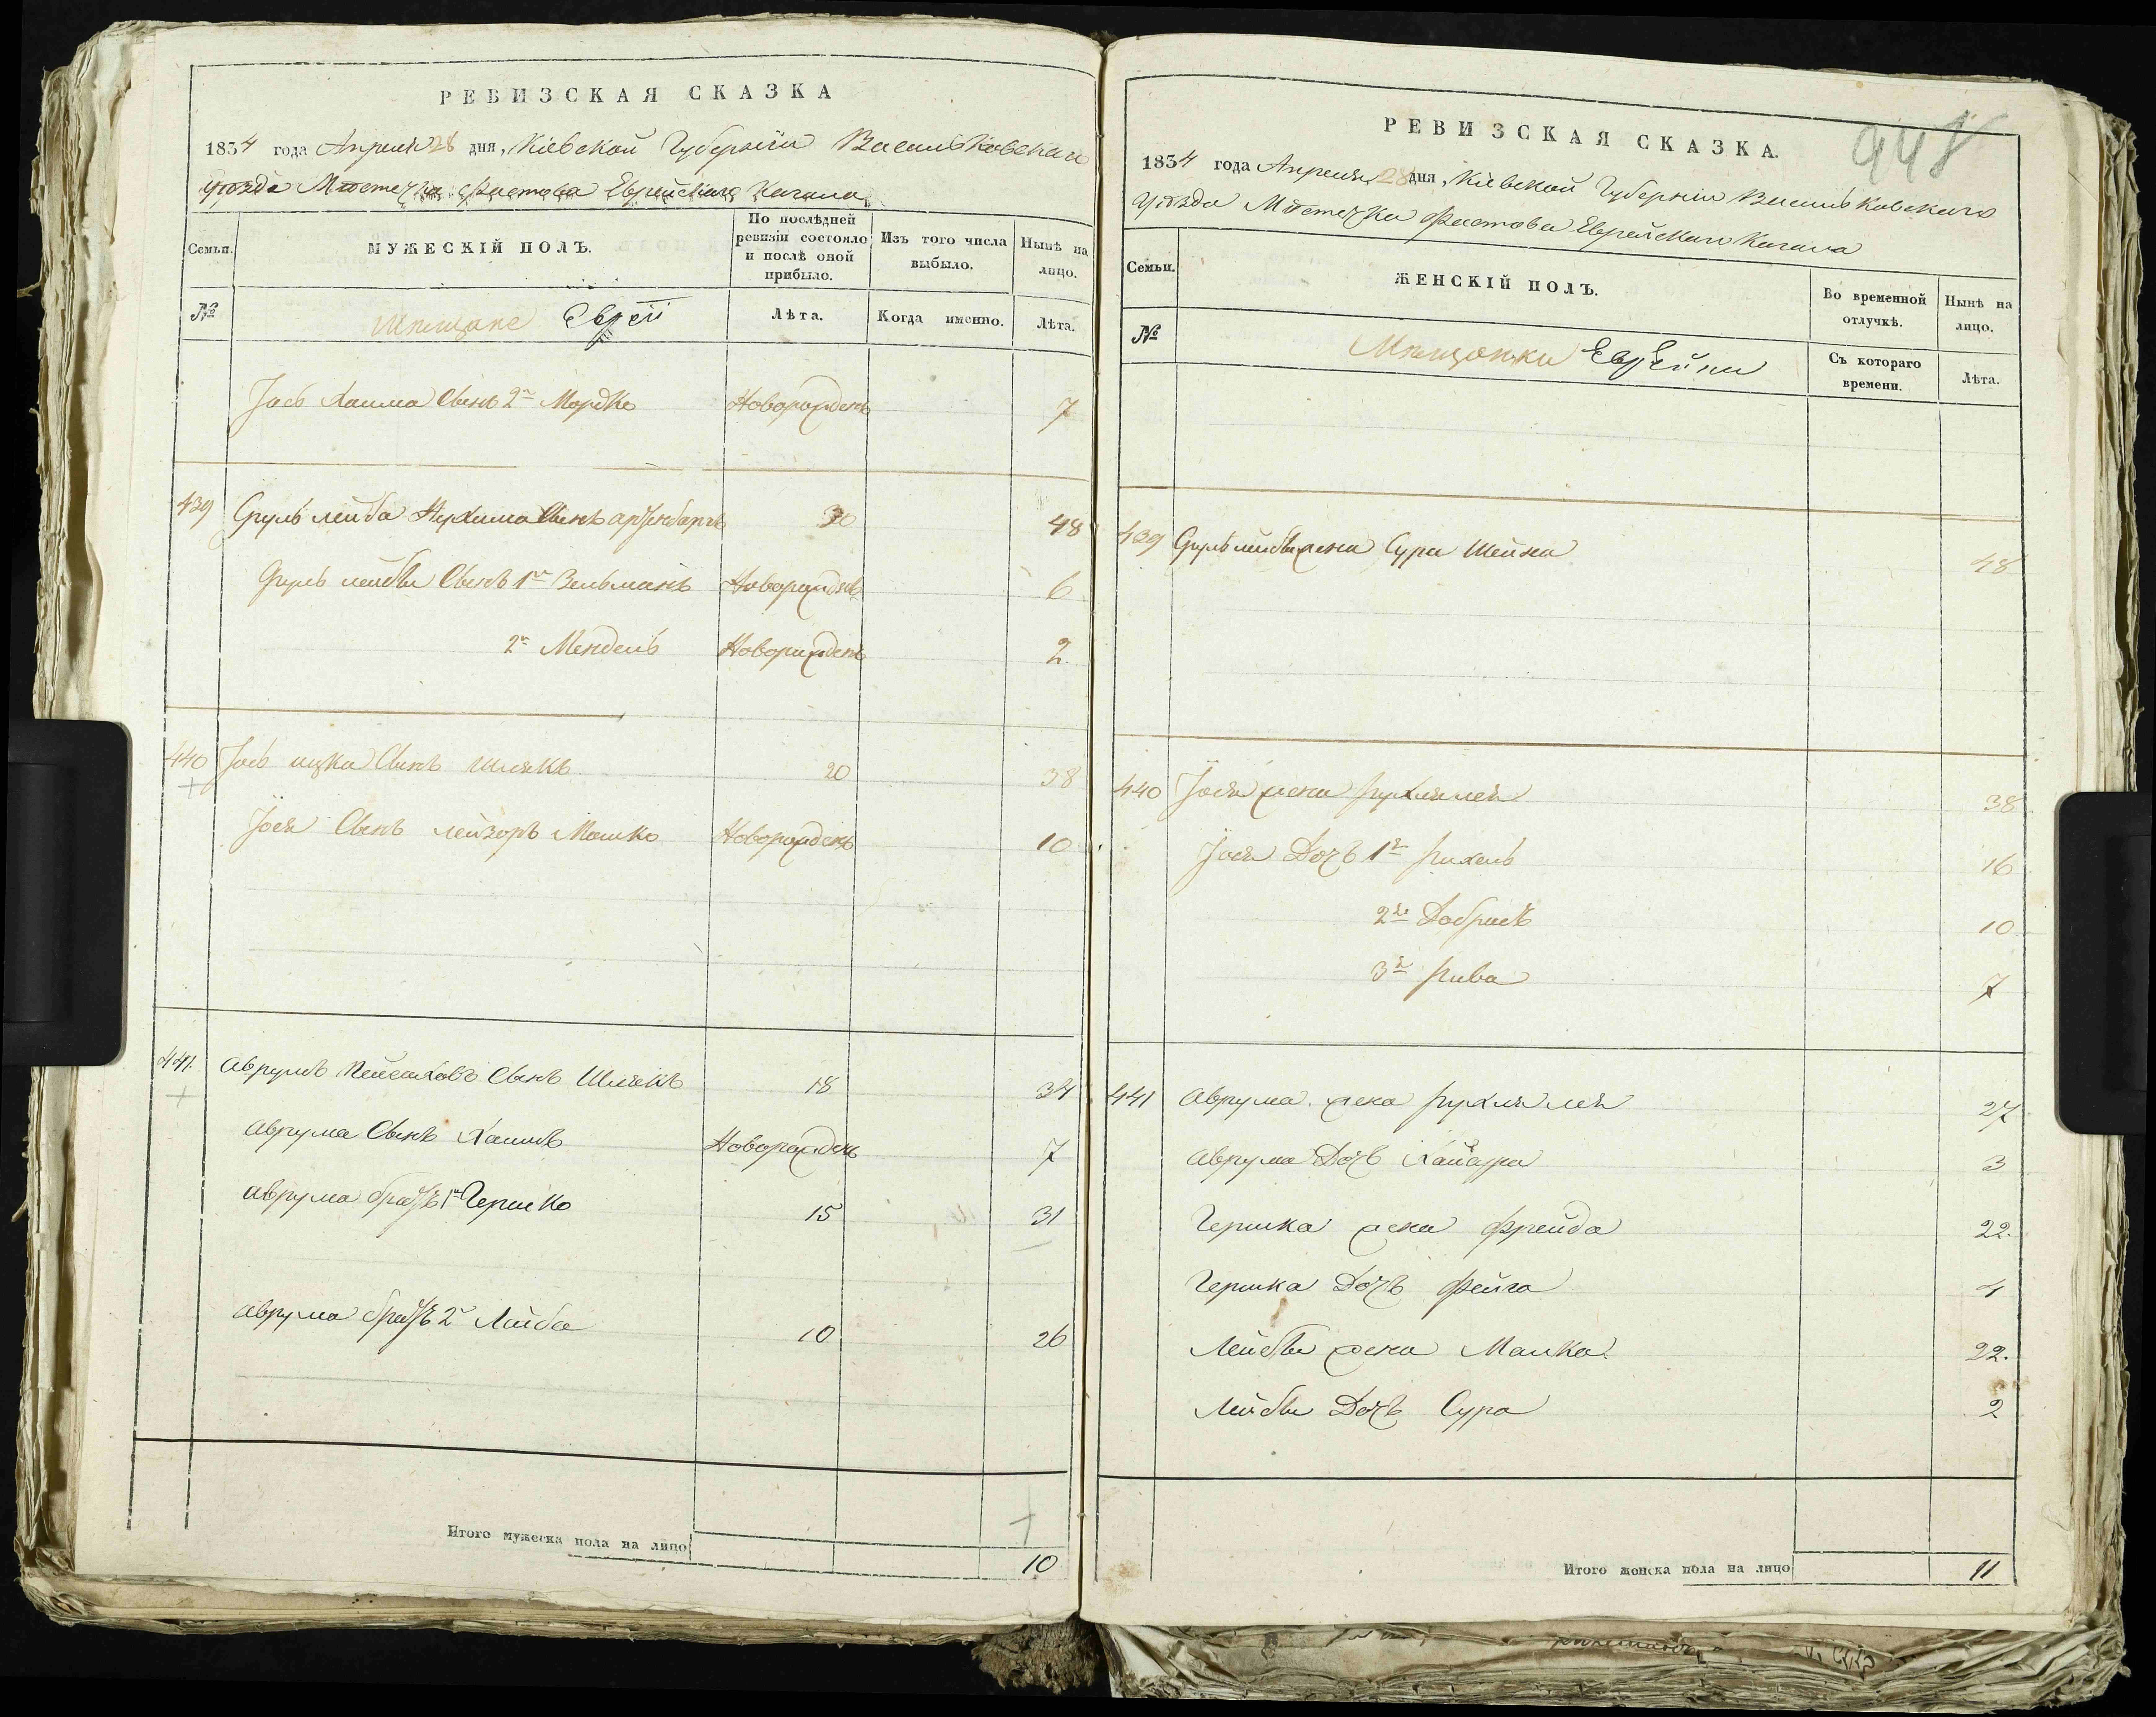 РЕВИЗСКАЯ СКАЗКА
1834 года Апреля 28 дня, Кіевской Губерніи Васильковскаго
уѣзда Мѣстечка Фастова Еврейскаго Кагала
Семьи.
МУЖЕСКІЙ ПОЛЪ.
По послѣдней ревизіи состояло и послѣ оной прибыло.
Изъ того числа выбыло.
Нынѣ на лицо.
№
Мѣщане Евреи
Лѣта.
Когда именно.
Лѣта.
Хаима Сынъ 2й Мордко Новорожденъ 7
439 Сруль лейба Нухима Сынъ 30 48
Сруль лейбы Сынъ 1й Зельманъ Новорожденъ 6
2й Мендель Новорожденъ 2
440 Іось ицка Сынъ шлякъ 20 38
Іося Сынъ лейзоръ Мошко Новорожденъ 10
441. аврумъ Пейсаховъ Сынъ Шлякъ 18 34
аврума Сынъ Хаимъ Новорожденъ 7
аврума братъ 1й Гершко 15 31
аврума братъ 2й Лейба 10 26
Итого мужеска пола на лицо 10
РЕВИЗСКАЯ СКАЗКА.
1834 года Апреля 28 дня, Кіевской Губерніи Васильковскаго
уѣзда Мѣстечка Фастова Еврейскаго Кагала
Семьи.
ЖЕНСКІЙ ПОЛЪ.
Во временной отлучкѣ.
Нынѣ на лицо.
№
Мѣщанки Еврейки
Съ котораго времени.
Лѣта.
439 Сруль лейбы жена Сура Шейна 48
440 Іося жена рухля лея 38
Іося Дочь 1я рихель 16
2я Добришъ 10
3я рива 7
441 аврума жена рухля лея 27
аврума Дочь 3
Гершка жена фрейда 22.
Гершка Дочь фейга 4
Лейбы жена Малка. 22.
Лейбы Дочь Сура 2
Итого женска пола на лицо 11